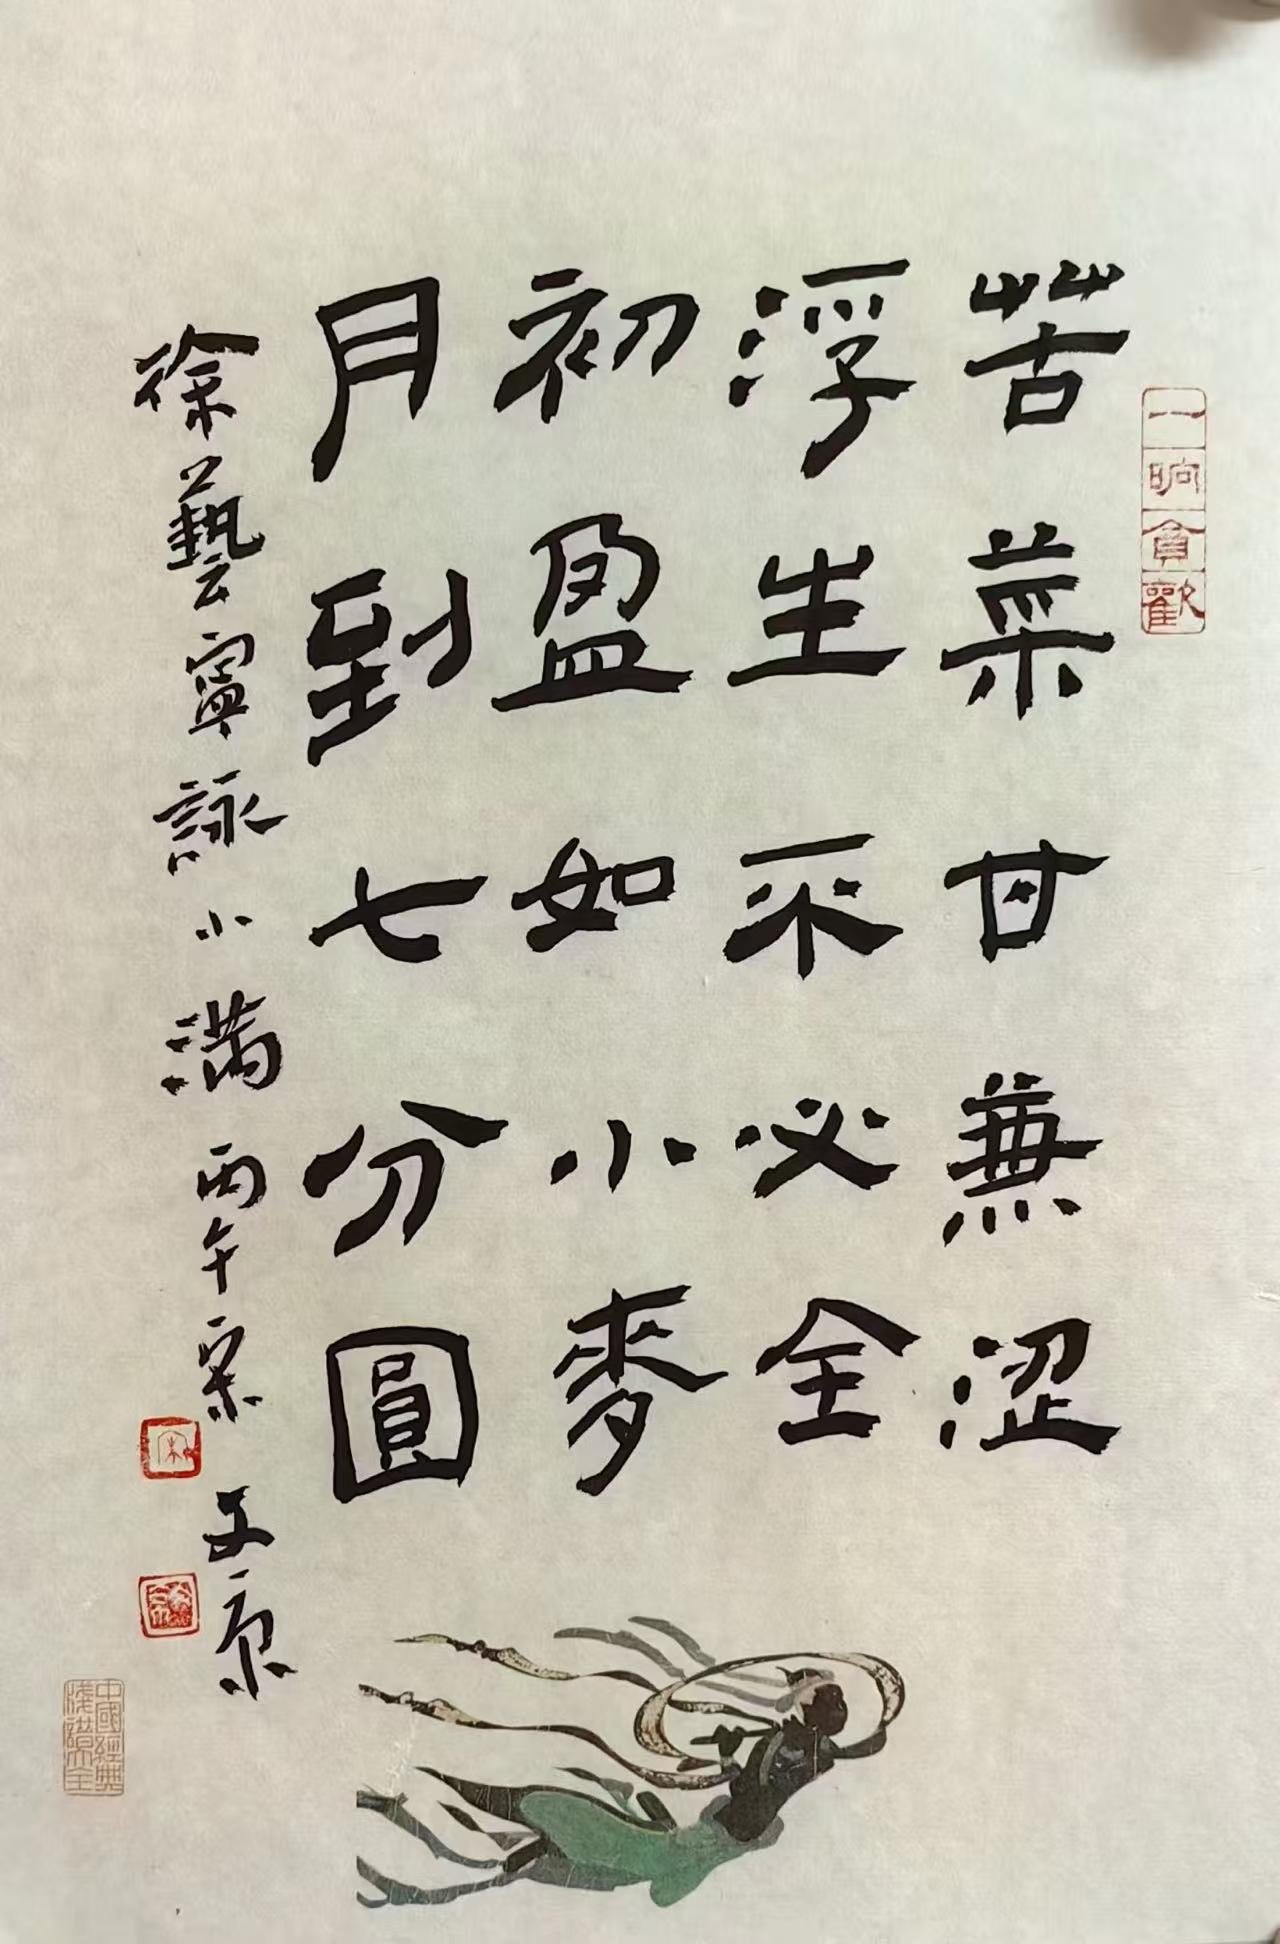 苦菜甘兼涩
浮生不必全
初盈如小麥
月到七分圓
徐藝寧詠小满丙午宋文京
一晌貪歡
宋
中國經典